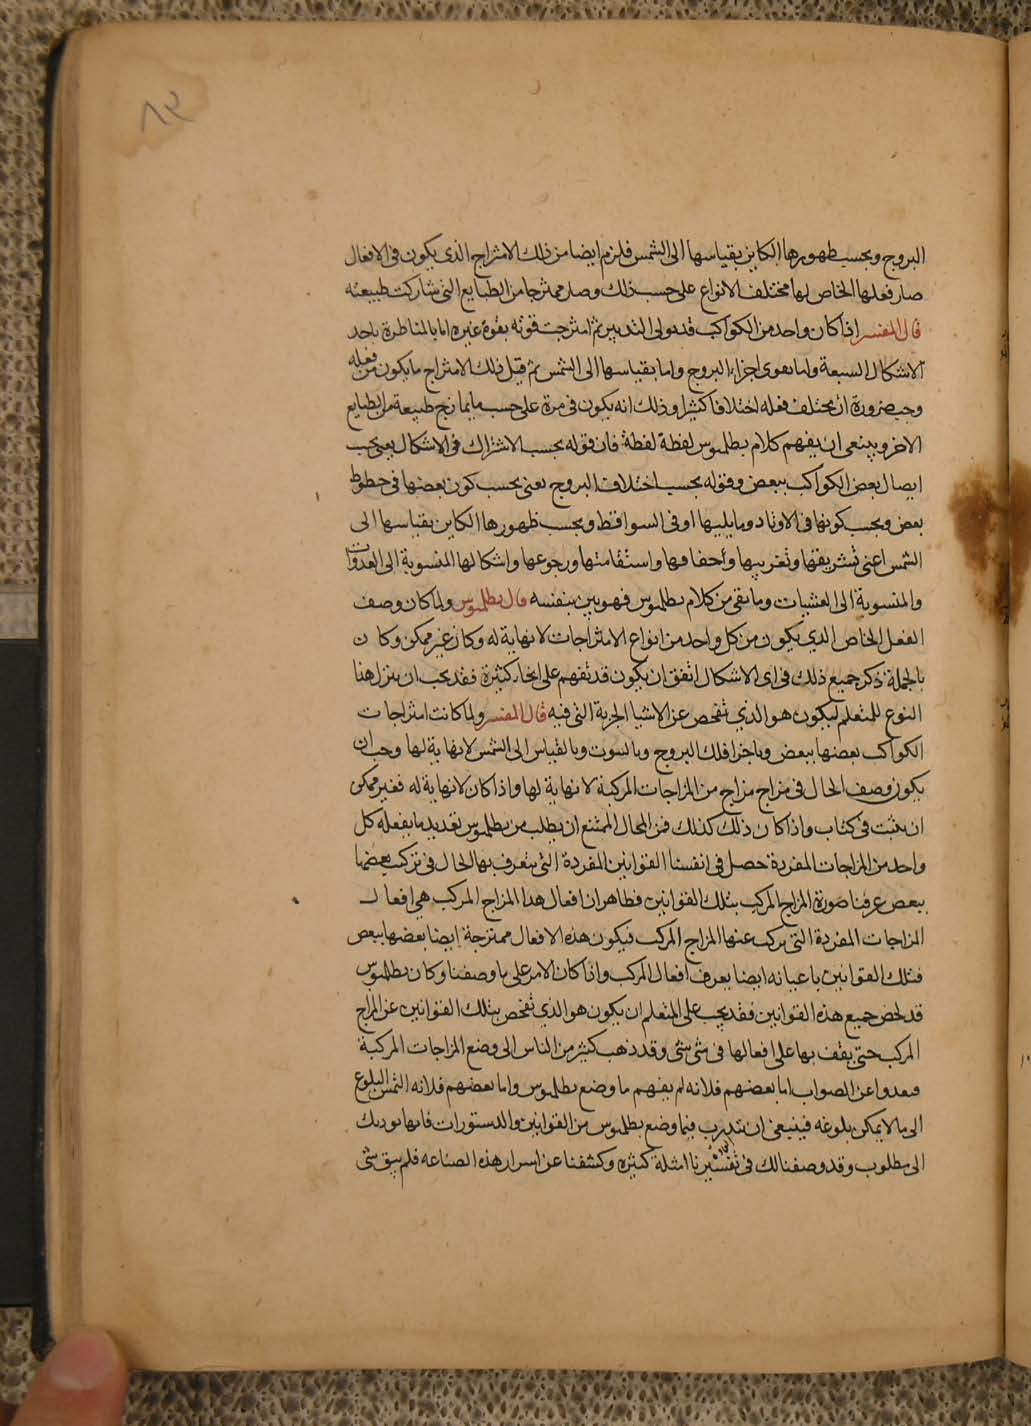 ٨٢
البروج وبحسب ظهورها الكاين بقياسها الى الشمس فلزم ايضا من ذلك الامتزاج الذى يكون فى الافعال
صار فعلها الخاص لها مختلف الانواع على حسب ذلك وصار ممتزجا من الطبايع التى شاركت طبيعته
قال المفسر اذا كان واحد من الكواكب قد تولى التدبير ثم امتزجت قوته بقوة غيره اما بالمناظرة باحد
الاشكال السبعة واما بقوى اجزاء البروج واما بقياسها الى الشمس ثم قبل ذلك الامتزاج ما يكون من فعله
وجب ضرورة ان يختلف فعله اختلافا كثيرا وذلك انه يكون فى مرة على حسب ما يمازج طبيعة من الطبايع
الاخر وينبغى ان يفهم كلام بطلميوس لفظة لفظة فان قوله بحسب الاشتراك فى الاشكال يعنى بحسب
ايصال بعض الكواكب ببعض وقوله بحسب اختلاف البروج يعنى بحسب كون بعضها فى حظوظ
بعض وبحسب كونها فى الاوتاد وما يليها او فى السواقط وبحسب ظهورها الكاين بقياسها الى
الشمس اعنى تشريقها وتغريبها واحفافها واستقامتها ورجوعها واشكالها المنسوبة الى الغدوات
والمنسوبة الى العشيات وما بقى من كلام بطلميوس فهو بين بنفسه قال بطلميوس ولما كان وصف
الفعل الخاص الذى يكون من كل واحد من انواع الامتزاجات لا نهاية له وكان غير ممكن وكان
بالجملة ذكر جميع ذلك فى اى الاشكال اتفق ان يكون قد تفهم على انحاء كثيرة فقد يجب ان ينزل هذا
النوع للمتعلم ليكون هو الذى تفحص عن الاشيا الجزية التى فيه قال المفسر ولما كانت امتزاجات
الكواكب بعضها ببعض وباجزا فلك البروج وبالبيوت وبالقياس الى الشمس لا نهاية لها وجب ان
يكون وصف الحال فى مزاج مزاج من المزاجات المركبة لا نهاية لها واذا كان لا نهاية له فغير ممكن
ان يثبت فى كتاب واذا كان ذلك كذلك فمن المحال الممتنع ان يطلب من بطلميوس تعديد ما يفعله كل
واحد من المزاجات المفردة حصل فى انفسنا القوانين المفردة التى يتعرف بها الحال فى تركيب بعضها
ببعض عرفنا صورة المزاج المركب بتلك القوانين فظاهر ان افعال هذا المزاج المركب هى افعال
المزاجات المفردة التى يركب عنها المزاج المركب فيكون هذه الافعال ممتزجة ايضا بعضها ببعض
فتلك القوانين باعيانه ايضا يعرف افعال المركب واذا كان الامر على ما وصفنا وكان بطلميوس
قد لخص جميع هذه القوانين فقد يجب على المتعلم ان يكون هو الذى تفحص بتلك القوانين عن المزاج
المركب حتى يقف بها على افعالها فى شى شى وقد ذهب كثير من الناس الى وضع المزاجات المركبة
فبعدوا عن الصواب اما بعضهم فلانه لم يفهم ما وضع بطلميوس واما بعضهم فلانه التمس البلوغ
الى ما لا يمكن بلوغه فينبغى ان تتدرب فيما وضع بطلميوس من القوانين والدستورات فانها توديك
الى مطلوب وقد وصفنا لك فى تفسيرنا امثلة كثيره وكشفنا عن اسرار هذه الصناعه فلم يبق شى